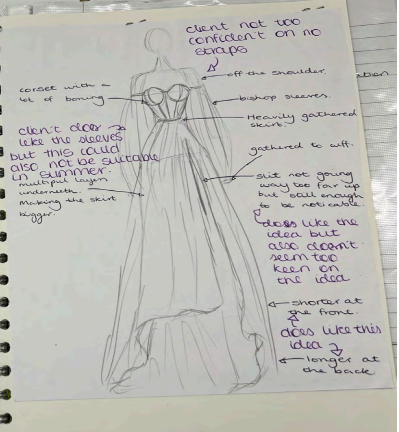 client not too
confident on no
straps
off the shoulder.
ation
corset with a
lot of boning
bishop sleeves.
Heavily gathered
skirt.
client does
like the sleeves
but this could
also not be suitable
in summer.
gathered to cuff.
multipul layers
underneath.
making the skirt
bigger.
slit not going
way too far up
but still enough
to be noticable.
does like the
idea but
also doesn't
seem too
keen on
the idea
shorter at
the front.
does like this
idea
longer at
the back.